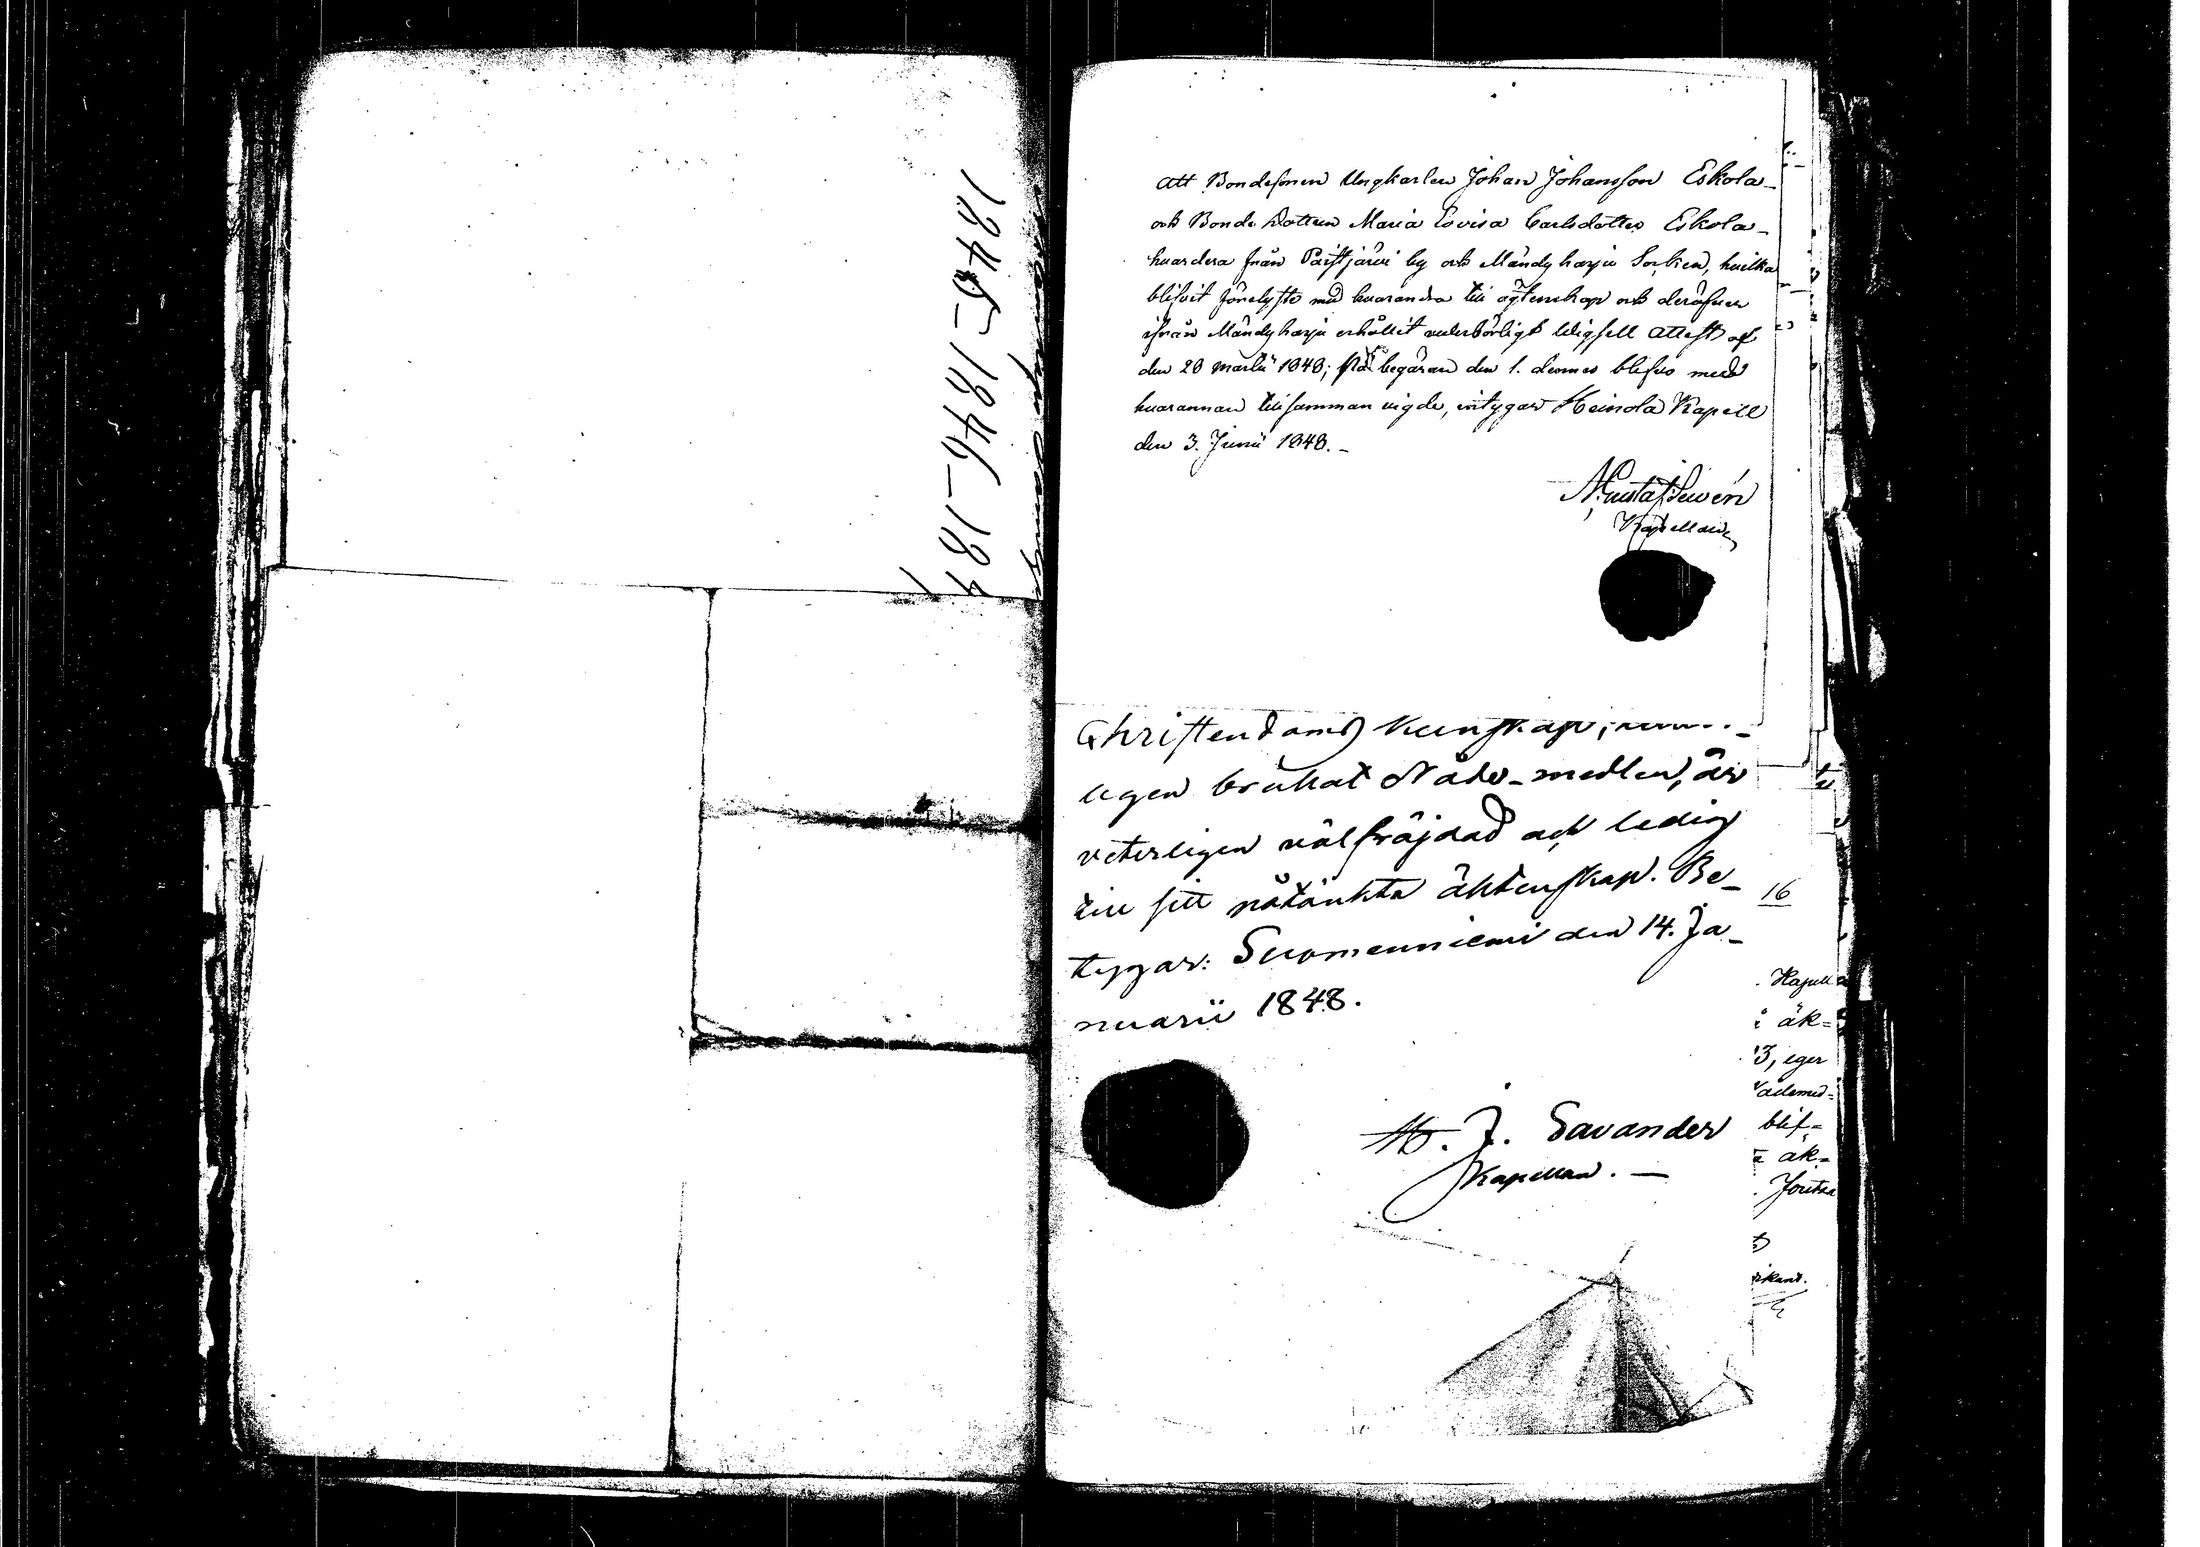 1845–1846–184
Att Bondesonen Ungkarlen Johan Johansson Eskola
och Bonde Dottren Maria Lovisa Carlsdotter Eskola
hvardera från Paistjärvi by och Mändyharju Socken, hvilka
blifvit förelyste med hvarandra till ägtenskap och deröfver
ifrån Mändyharju erhållit vederbörligt Attest af
den 20 Martii 1848; på begäran den 1. dennes blifvo med
hvarannan tillsamman vigde, intygar Heinola Kapell
den 3. Junii 1848.
Kapellan
Christendoms kunskap,
ligen brukat Nåde-medlen, är
veterligen välfräjdad och ledig
till sitt påtänkta äktenskap. Be-
tygar: Suomenniemi den 14. Ja-
nuarii 1848.
J. Savander
Kapellan.
16
Kapell
äk=
3, eger
ådemed=
blif=
äk=
Joutsa